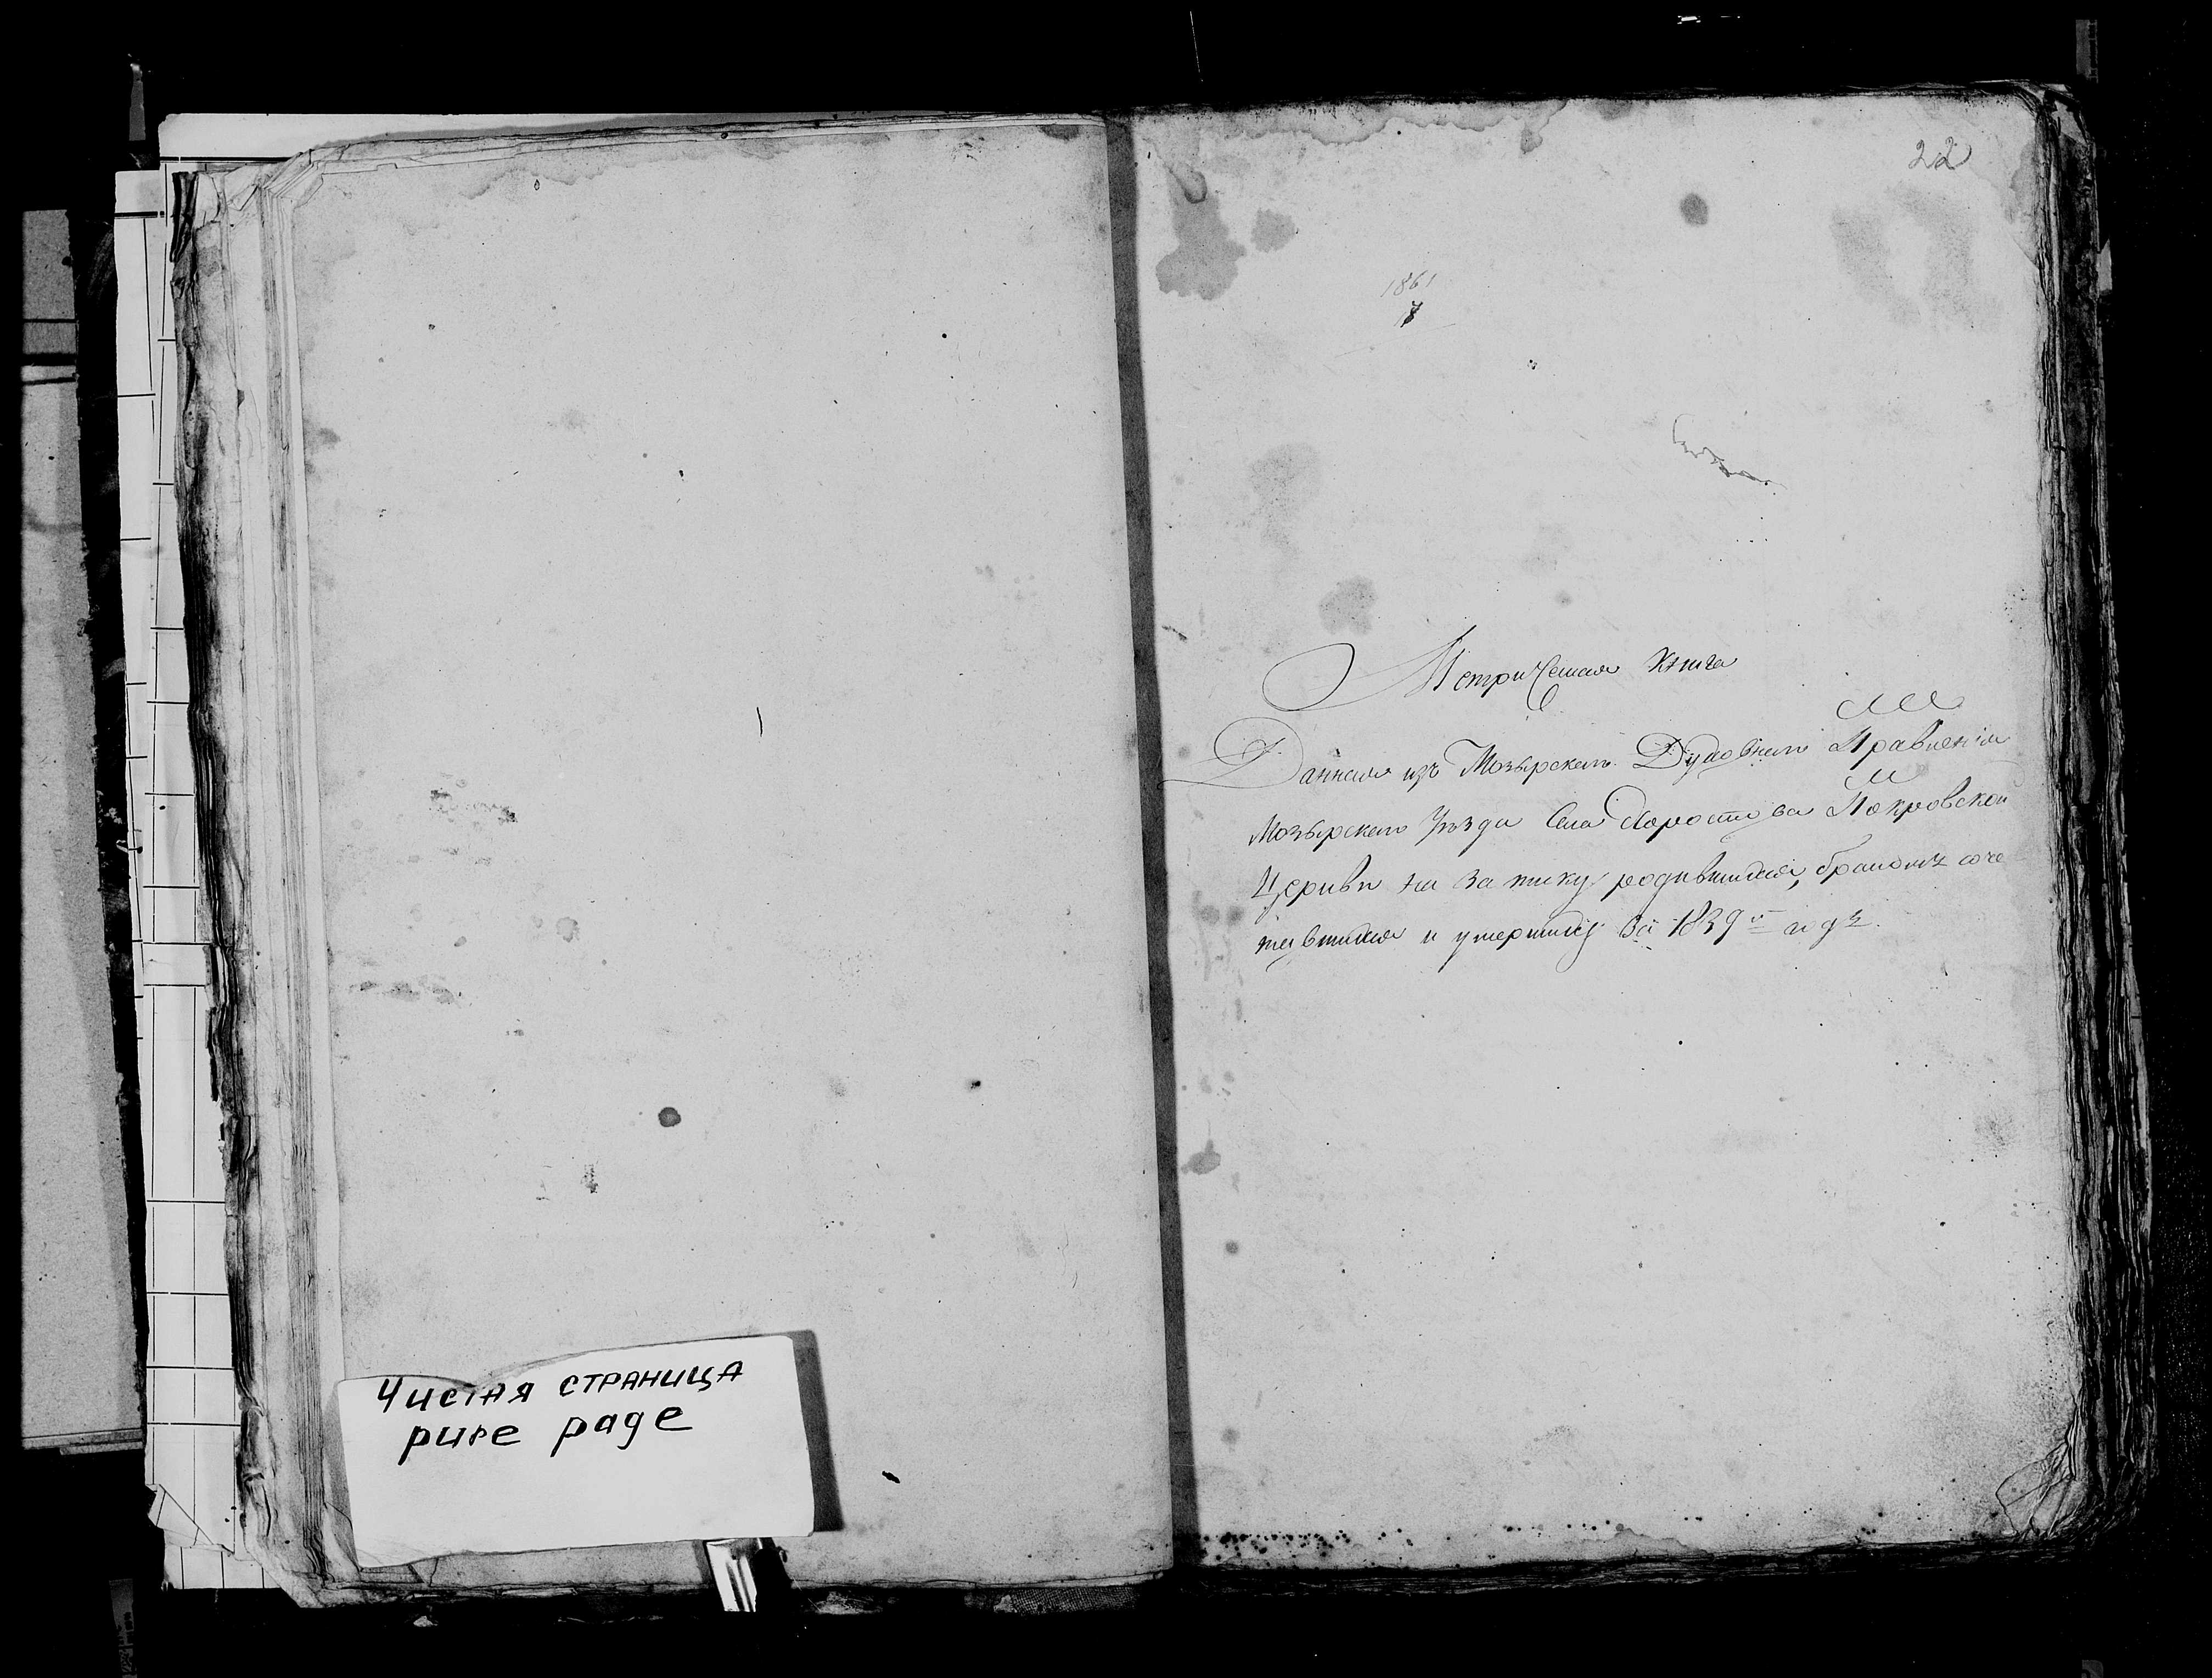 Чистая страница
pure page
22
1861
7
Метрическая Книга
Данная изъ Мозырскаго Духовнаго Правленія
Мозырскаго Уѣзда Села Хоростова Покровской
Церкви на записку родившихся, бракомъ соче
тавшихся и умершихъ за 1839й годъ.